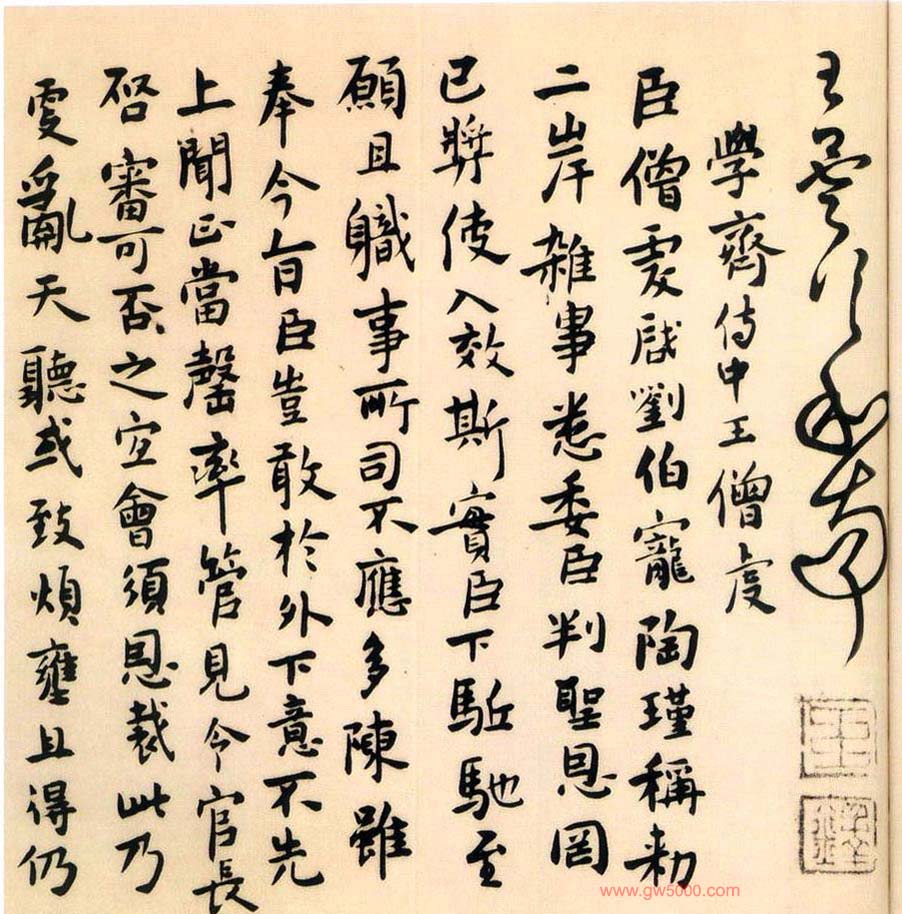 學齊侍中王僧虔
臣僧虔啟劉伯寵陶瑾稱勑
二岸雜事悉委臣判聖恩罔
已獎使入效斯實臣下駈馳至
願且職事所司不應多陳雖
奉今旨臣豈敢於外下意不先
上聞正當罄率管見今官長
啓審可否之宜會須恩裁此乃
更亂天聽或致煩壅且得仍
www.gw5000.com